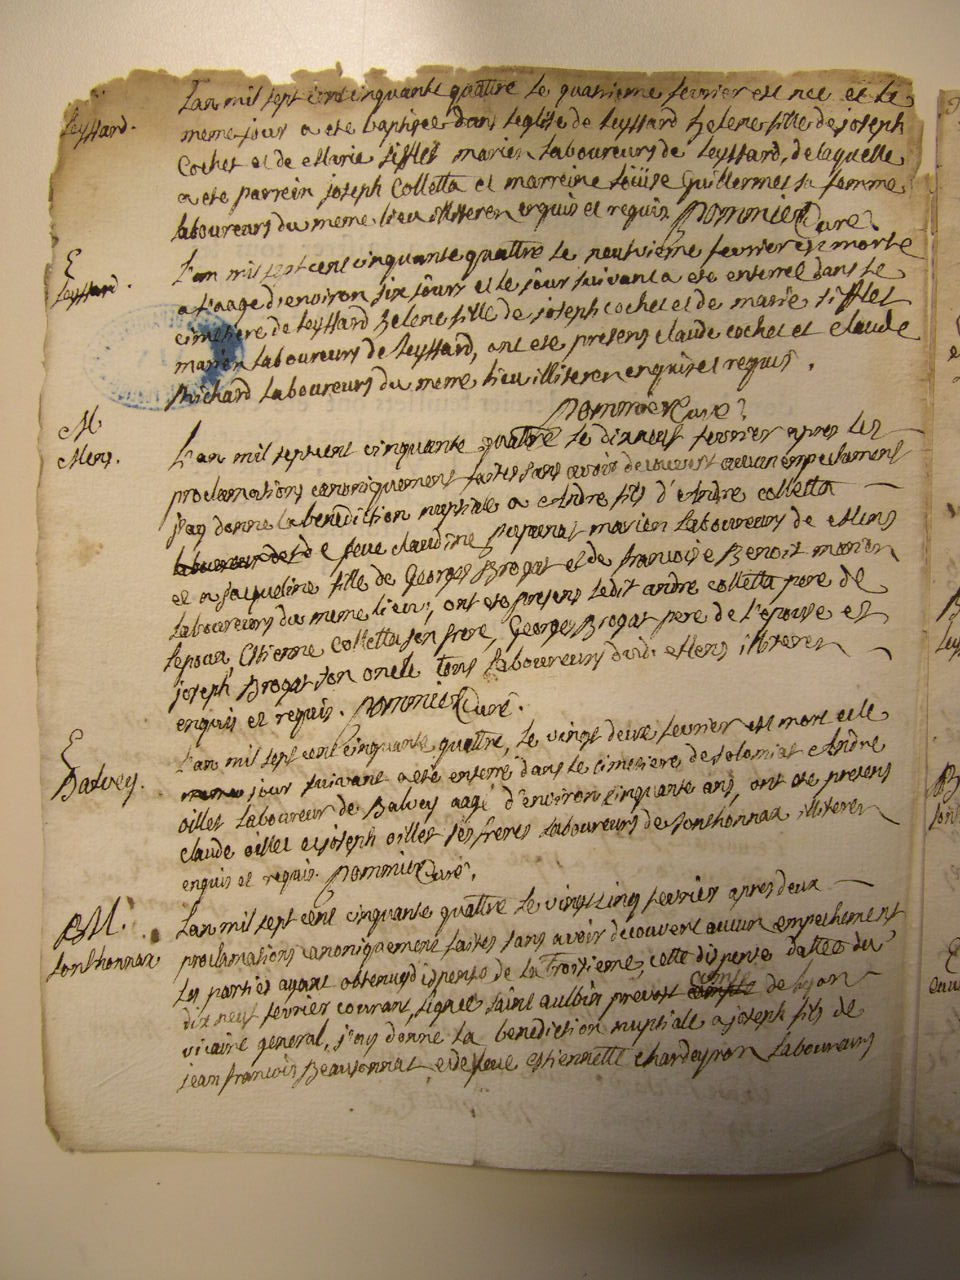 Leyssard.
L'an mil sept cent cinquante quattre le quatrieme fevrier est née et le
meme jour a eté baptisée dans leglise de Leyssard helene fille de joseph
Cochet et de Marie sifflet mariés Laboureurs de Leyssard, de laquelle
a eté parrein joseph Colletta et marreine Guillermet sa femme
laboureurs du meme lieu illiteres enquis et requis. Pommier Curé.
E
Leyssard.
L'an mil sept cent cinquante quattre le neufvieme fevrier est morte
a l'aage d'environ six jours et le jour suivant a eté enterrée dans le
cimetiere de Leyssard helene fille de joseph cochet et de marie sifflet
mariés Laboureurs de Leyssard, ont eté presens claude cochet et claude
Michard Laboureurs du meme lieu illiteres enquis et requis.
Pommier Curé.
M
Mens.
L'an mil sept cent cinquante quattre le dixneuf fevrier apres les
proclamations canoniquement faites sans avoir decouvert aucun empechement
j'ay donné la benediction nuptiale a Andre fils d'Andre colletta
de feue claudine mariés Laboureurs de Mens
et a jaqueline fille de Georges Brogat et de francoise Benoit mariés
Laboureurs du meme lieu, ont eté presens ledit andre colletta pere de
l'epoux, Estienne Colletta son frere, Georges Brogat pere de l'epouse et
joseph Brogat son oncle tous Laboureurs dudi Mens illiteres
enquis et requis. Pommier Curé.
E
Balvey.
L'an mil sept cent cinquante quattre, le vingt deux fevrier est mort et le
jour suivant a eté enterré dans le cimetiere de solomiat Andre
oillet Laboureur de Balvey aagé d'environ cinquante ans, ont eté presens
claude oillet et joseph oillet ses freres Laboureurs de sonthonnax illiteres
enquis et requis. Pommier Curé.
M.
sonthonnax
L'an mil sept cent cinquante quattre le vingt cinq fevrier apres deux
proclamations canoniquement faites sans avoir decouvert aucun empechement
les parties ayant obtenu dispense de la troisieme, cette dispense dattée du
dix neuf fevrier courant, signée saint aulbin prevost comte de Lyon
vicaire general, j'ay donné la benediction nuptiale a joseph fils de
jean francois Beausonnat et de feue estiennette chardeyron Laboureurs